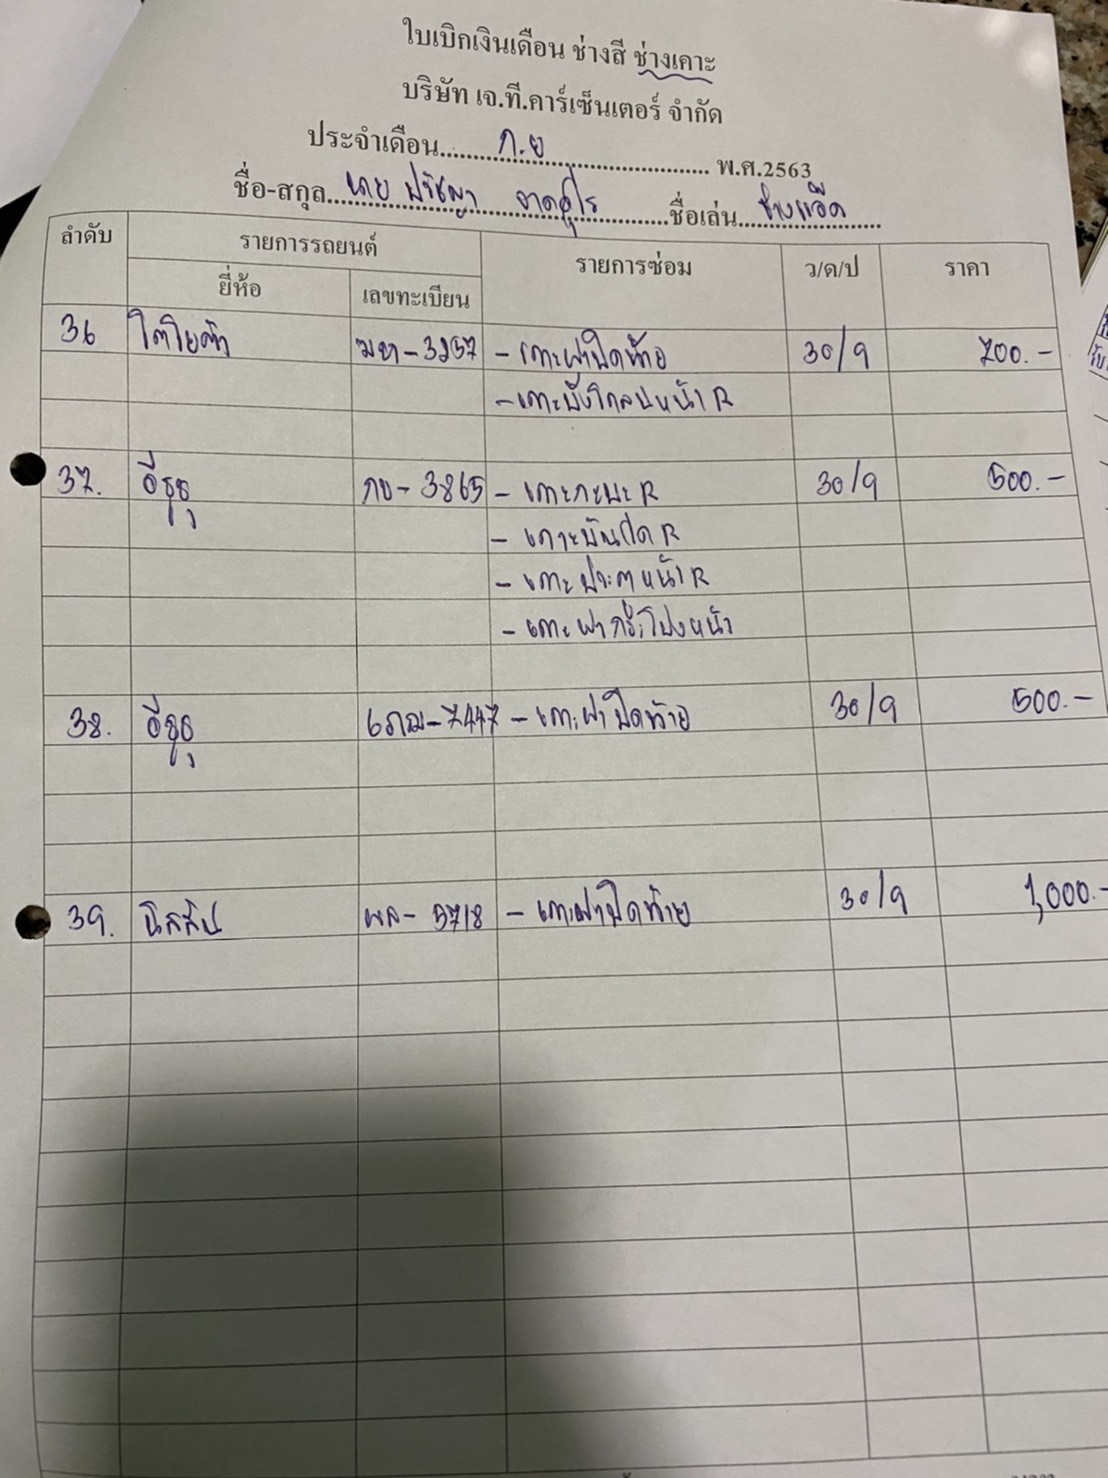 ใบเบิกเงินเดือน ช่างสี ช่างเคาะ
บริษัท เจ.ที.คาร์เซ็นเตอร์ จำกัด
ประจำเดือน ก.ย พ.ศ.2563
ชื่อ-สกุล นาย ปรัชญา ชื่อเล่น ช่างแอ๊ด
ลำดับ รายการรถยนต์ รายการซ่อม ว/ด/ป ราคา
ยี่ห้อ เลขทะเบียน
36 โตโยต้า ฆห-3257 - เคาะฝาปิดท้าย 30/9 700.-
- เคาะบังโคลนหน้า R
37. อีซูซุ กข-3865 - เคาะกะบะ R 30/9 500.-
- เคาะบันได R
- เคาะประตูหน้า R
- เคาะฝากระโปรงหน้า
38. อีซูซุ 6ภฌ-7447 - เคาะฝาปิดท้าย 30/9 500.-
39. นิสสัน ผล-5718 - เคาะฝาปิดท้าย 30/9 1,000.-